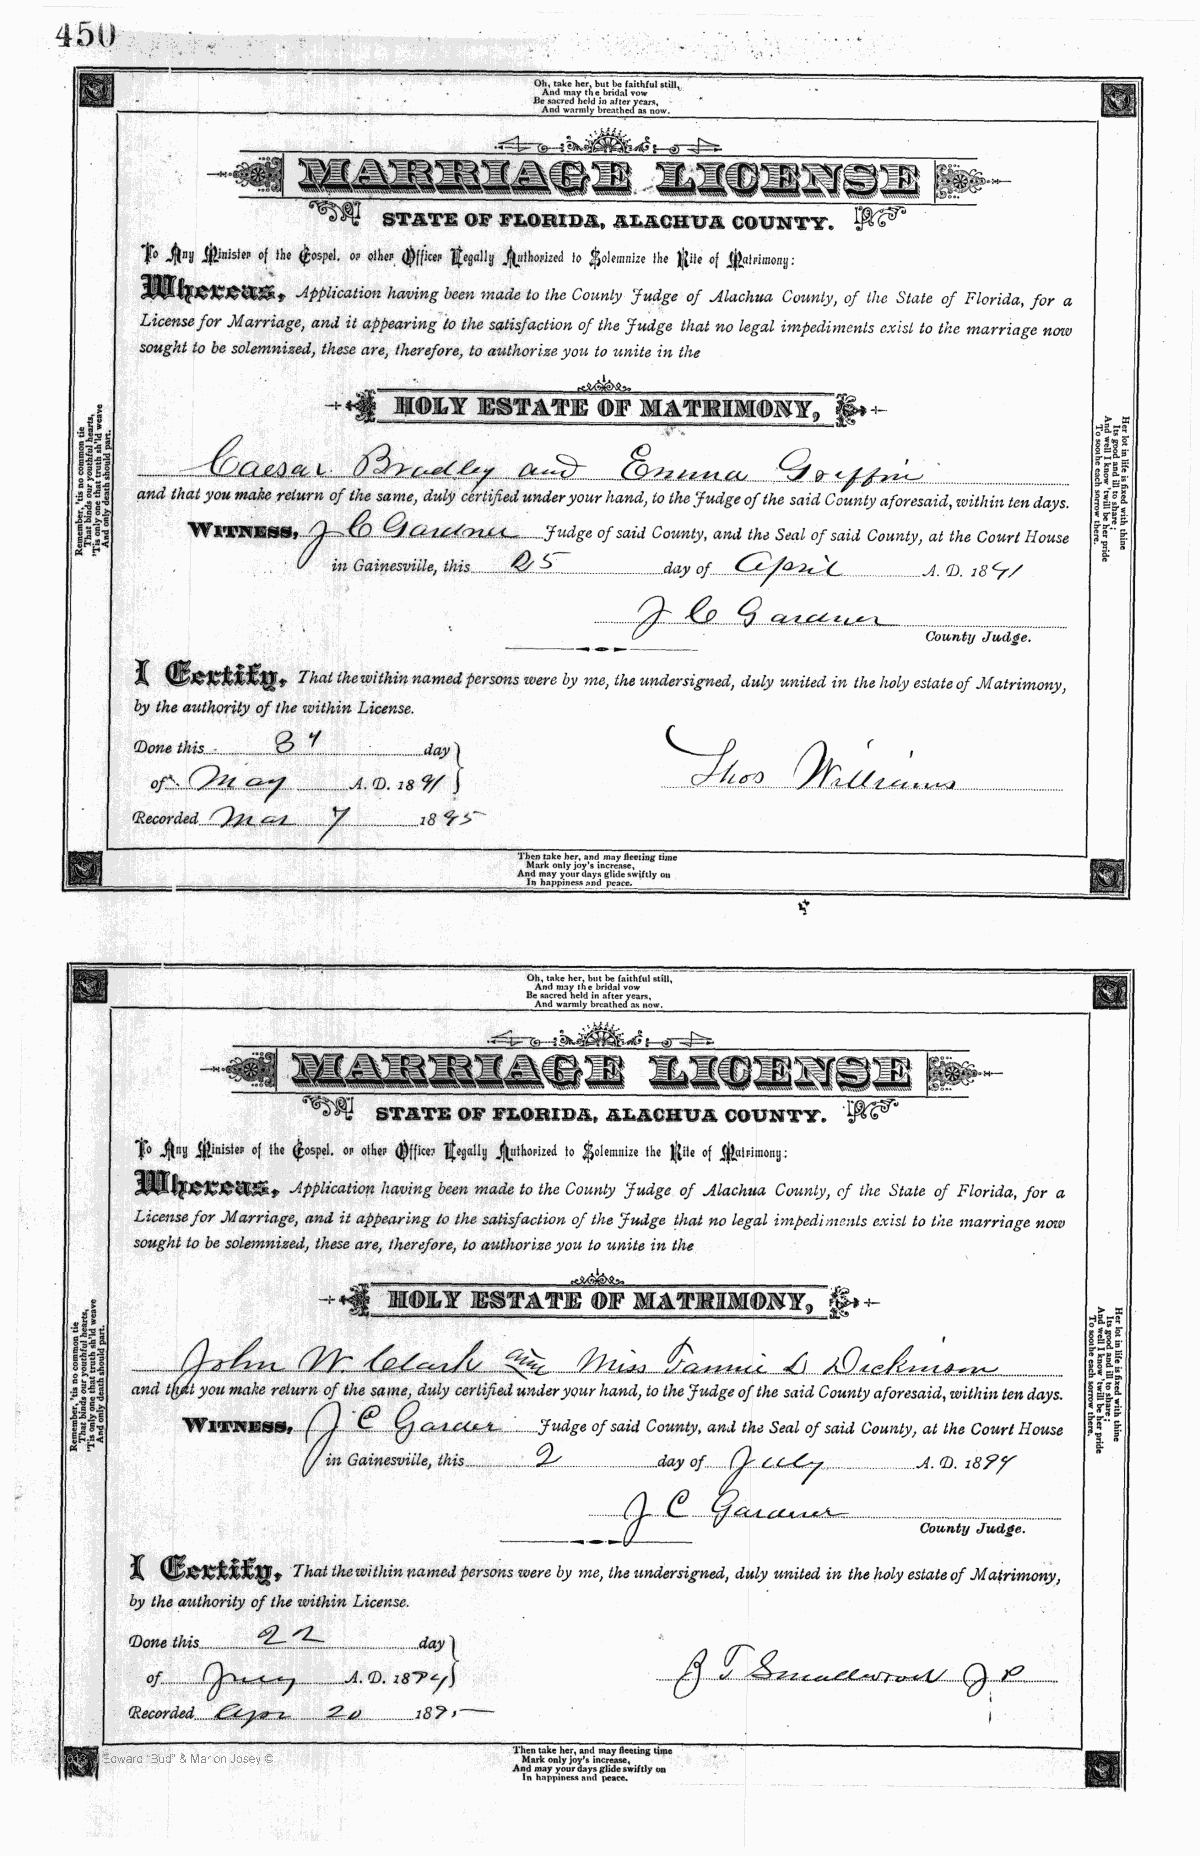 450
Oh, take her, but be faithful still,
And may the bridal vow
Be sacred held in after years,
And warmly breathed as now.
MARRIAGE LICENSE
STATE OF FLORIDA, ALACHUA COUNTY.
To Any Minister of the Gospel, or other Officer Legally Authorized to Solemnize the Rite of Matrimony:
Whereas, Application having been made to the County Judge of Alachua County, of the State of Florida, for a
License for Marriage, and it appearing to the satisfaction of the Judge that no legal impediments exist to the marriage now
sought to be solemnized, these are, therefore, to authorize you to unite in the
HOLY ESTATE OF MATRIMONY,
Caesar Bradley and Emma Griffin
and that you make return of the same, duly certified under your hand, to the Judge of the said County aforesaid, within ten days.
WITNESS, J C Gardner Judge of said County, and the Seal of said County, at the Court House
in Gainesville, this 25 day of April A. D. 1891
J C Gardner
County Judge.
I Certify, That the within named persons were by me, the undersigned, duly united in the holy estate of Matrimony,
by the authority of the within License.
Done this day
of May A. D. 1891
Thos Williams
Recorded Mar 7 1895
Remember, 'tis no common tie
That binds our youthful hearts,
'Tis only one that truth sh'ld weave
And only death should part.
Her lot in life is fixed with thine
Its good and ill to share;
And well I know 'twill be her pride
To soothe each sorrow there.
Then take her, and may fleeting time
Mark only joy's increase,
And may your days glide swiftly on
In happiness and peace.
Oh, take her, but be faithful still,
And may the bridal vow
Be sacred held in after years,
And warmly breathed as now.
MARRIAGE LICENSE
STATE OF FLORIDA, ALACHUA COUNTY.
To Any Minister of the Gospel, or other Officer Legally Authorized to Solemnize the Rite of Matrimony:
Whereas, Application having been made to the County Judge of Alachua County, of the State of Florida, for a
License for Marriage, and it appearing to the satisfaction of the Judge that no legal impediments exist to the marriage now
sought to be solemnized, these are, therefore, to authorize you to unite in the
HOLY ESTATE OF MATRIMONY,
John W. Clark and Miss Fannie D Dickinson
and that you make return of the same, duly certified under your hand, to the Judge of the said County aforesaid, within ten days.
WITNESS, J C Garder Judge of said County, and the Seal of said County, at the Court House
in Gainesville, this 2 day of July A. D. 1894
J C Gardner
County Judge.
I Certify, That the within named persons were by me, the undersigned, duly united in the holy estate of Matrimony,
by the authority of the within License.
Done this 22 day
of July A. D. 1894
Smallwood J P
Recorded Apr 20 1895
Remember, 'tis no common tie
That binds our youthful hearts,
'Tis only one that truth sh'ld weave
And only death should part.
Her lot in life is fixed with thine
Its good and ill to share;
And well I know 'twill be her pride
To soothe each sorrow there.
Edward "Bud" & Marion Josey ©
Then take her, and may fleeting time
Mark only joy's increase,
And may your days glide swiftly on
In happiness and peace.